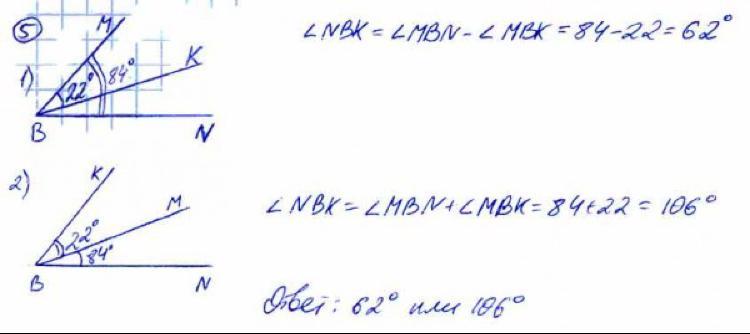 5
1) M K 22° 84° B N
∠NBK = ∠MBN - ∠MBK = 84 - 22 = 62°
2) K M 22° 84° B N
∠NBK = ∠MBN + ∠MBK = 84 + 22 = 106°
Ответ: 62° или 106°